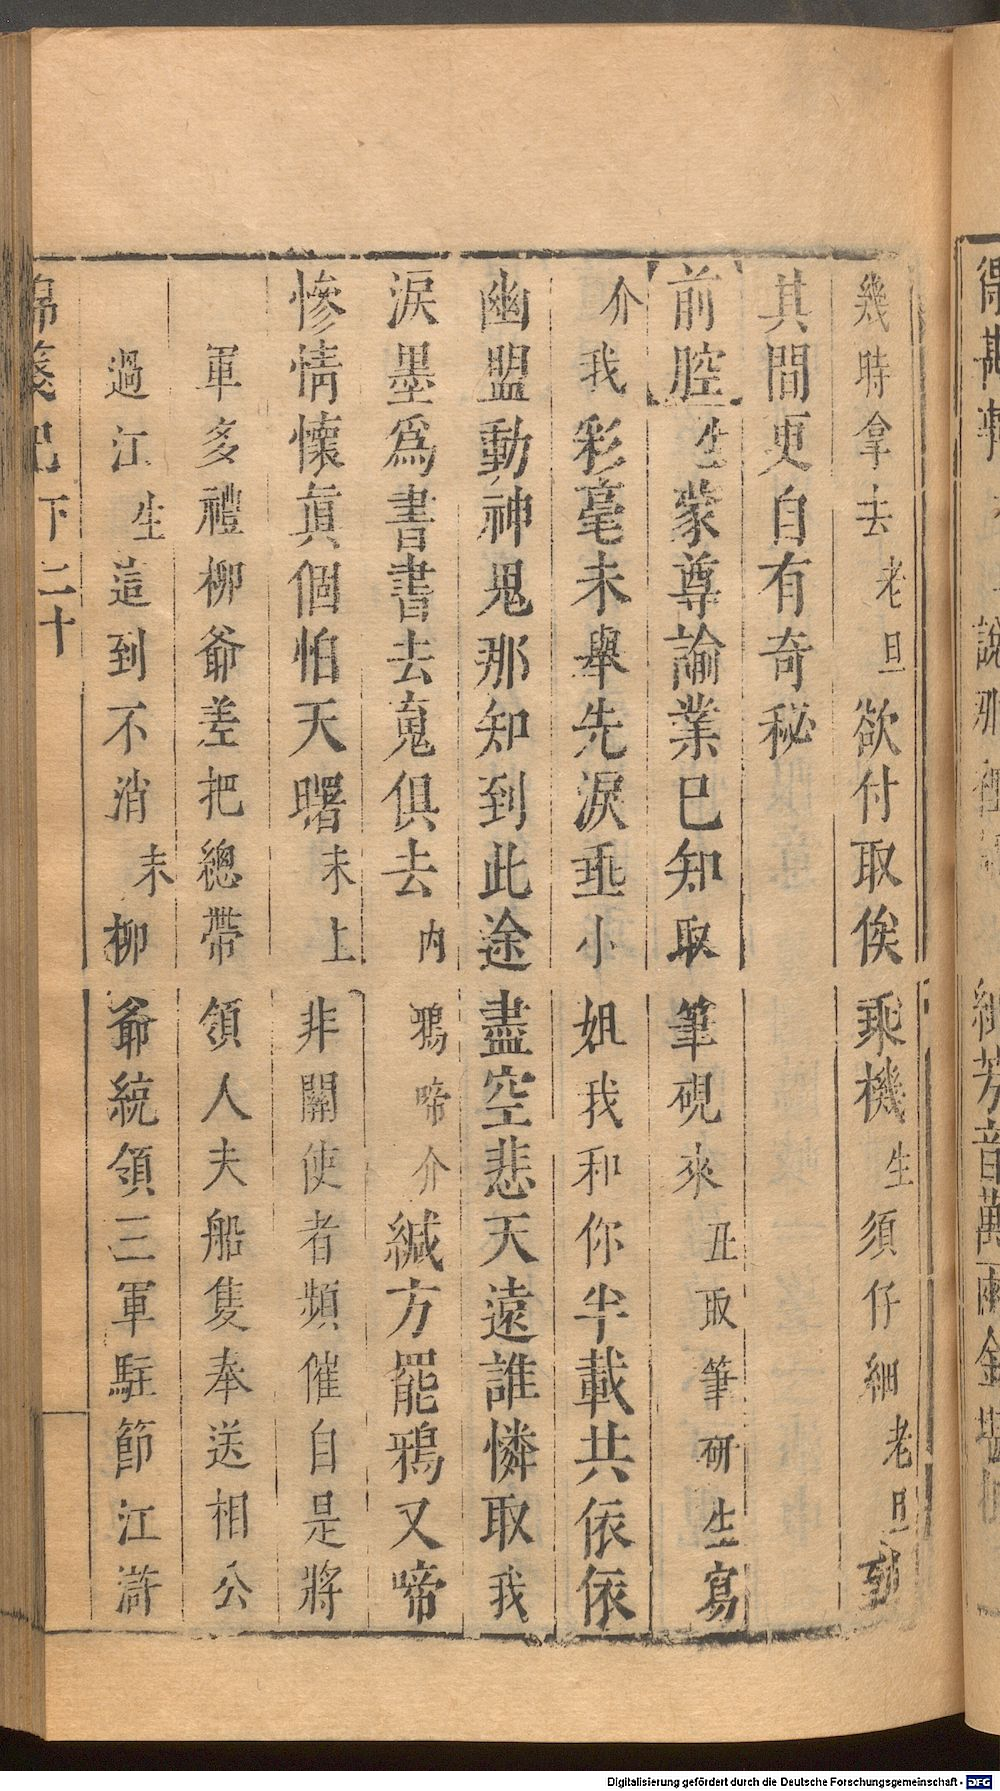 幾時拿去老旦欲付取俟乘機生須仔細老旦
其間更自有奇秘
前腔生蒙尊諭業已知取筆硯來丑取筆研生寫
介我彩毫未舉先淚垂小姐我和你半載共依依
幽盟動神鬼那知到此途盡空悲天遠誰憐取我
淚墨爲書書去寬俱去内鴉啼介緘方罷鴉又啼
慘情懷眞個怕天曙末上非關使者頻催自是將
軍多禮柳爺差把總帶領人夫船隻奉送相公
過江生這到不消末柳爺統領三軍駐節江滸
錦箋記下二十
說那
紉芳音萬兩金
Digitalisierung gefördert durch die Deutsche Forschungsgemeinschaft - DFG